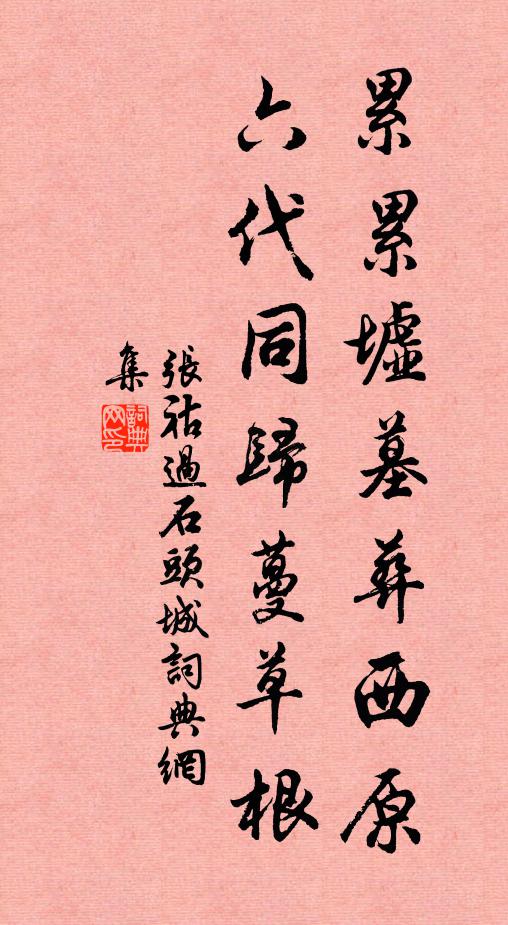 累累墟墓葬西原
六代同歸蔓草根
張祜過石頭城詞典網
集
詞典
网印